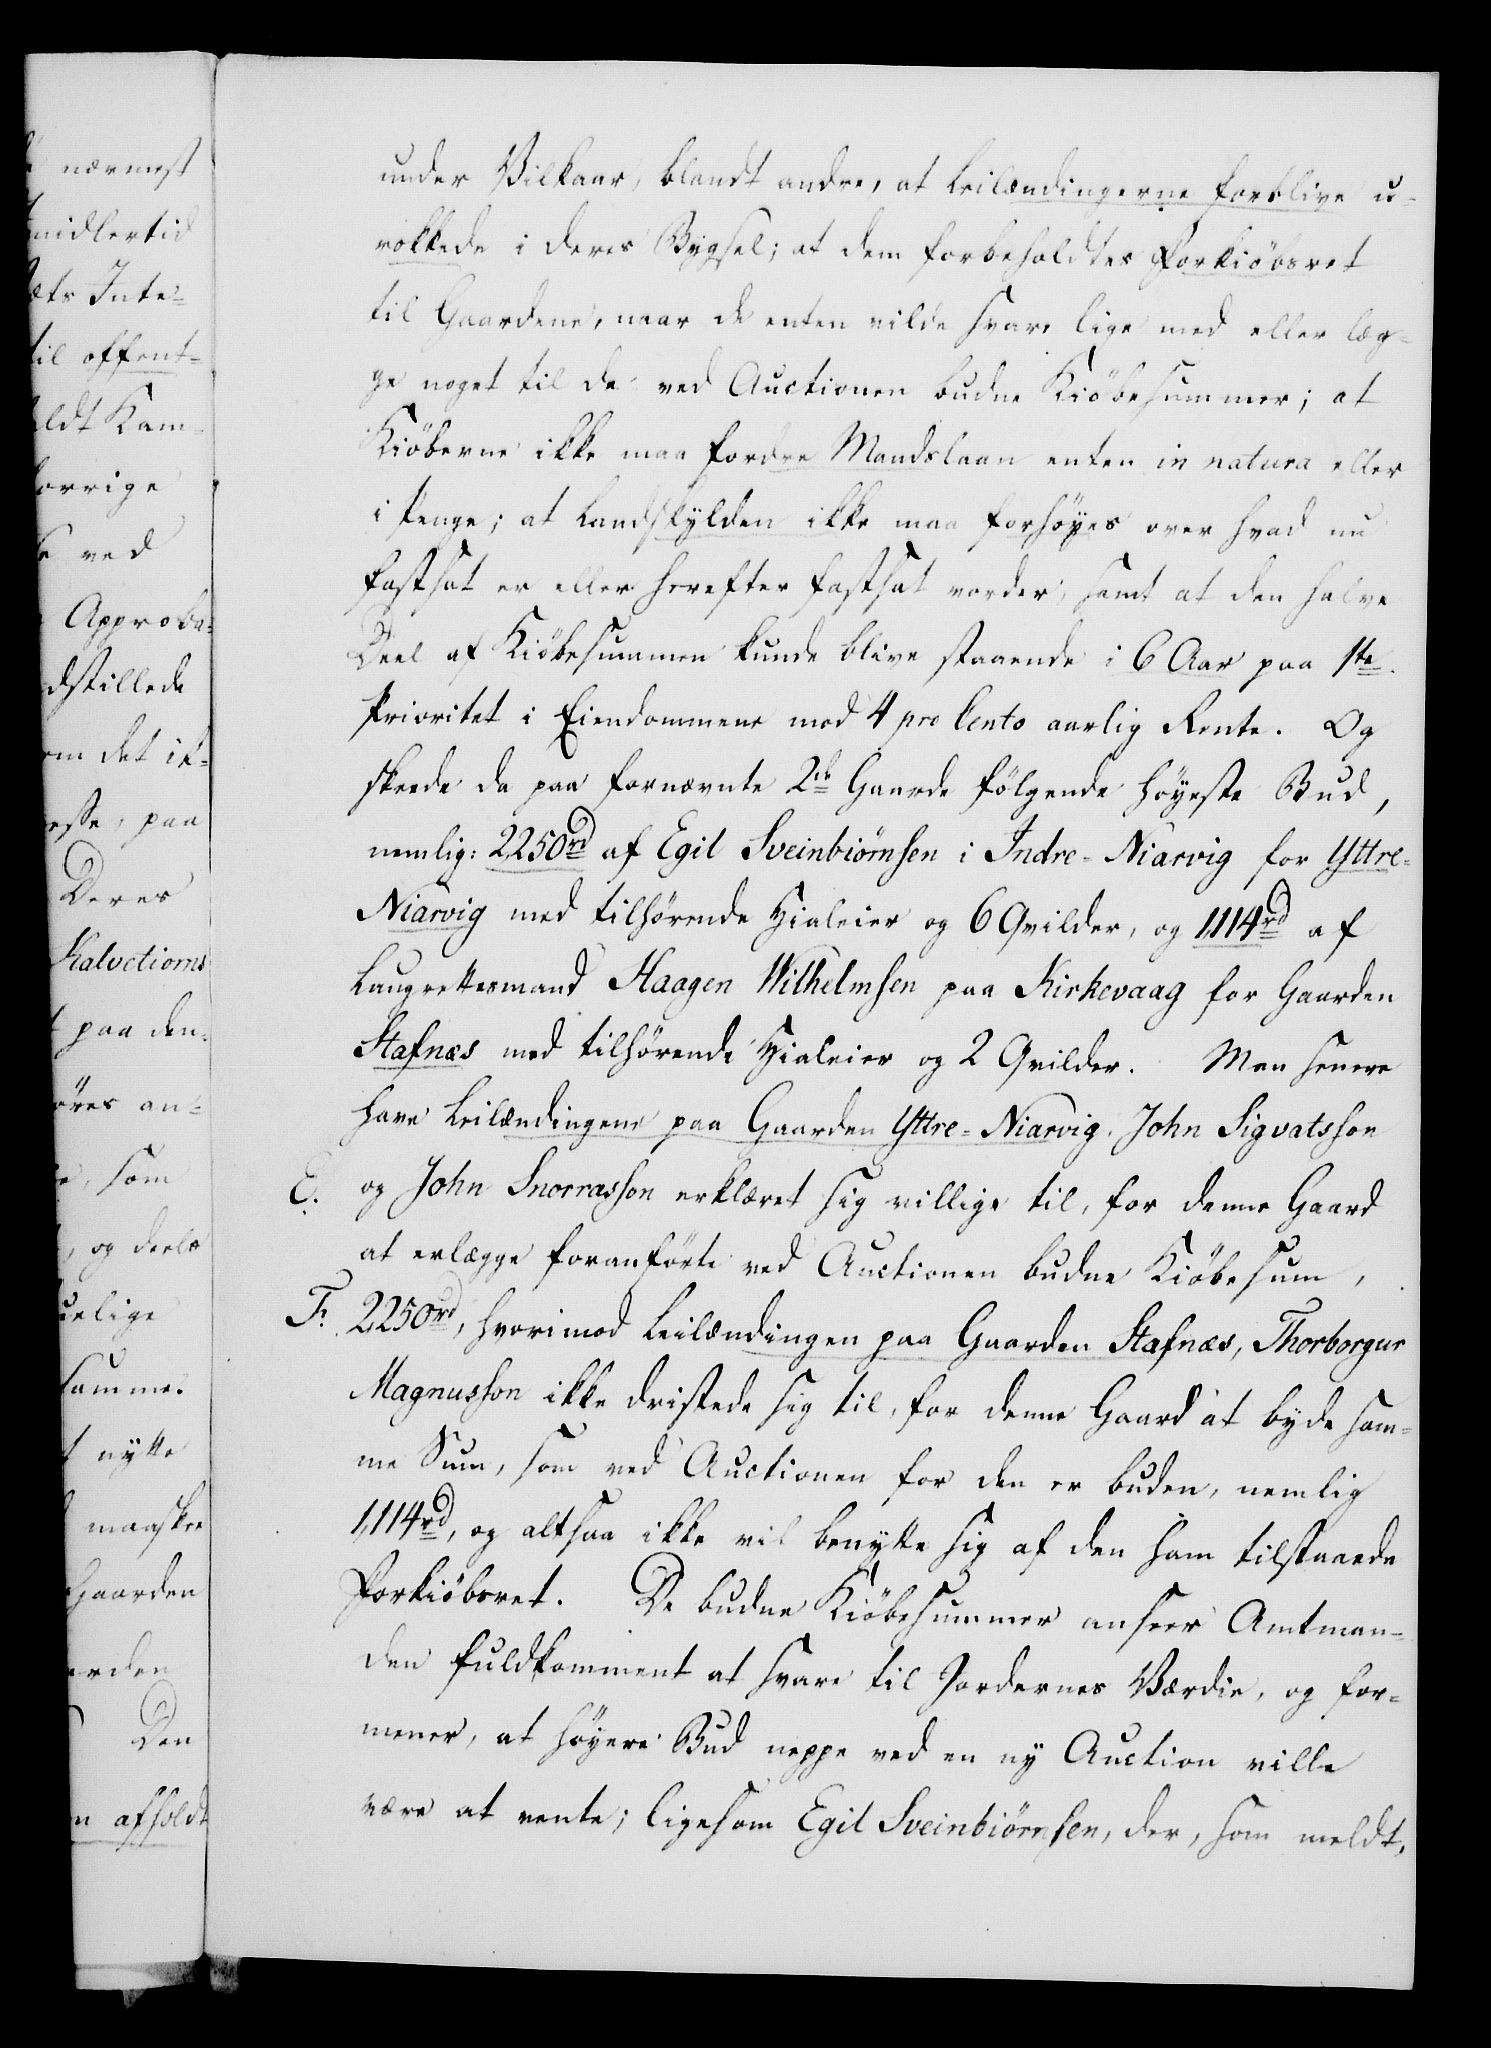 nærmest
midlertid
æts Inte-
til offent-
ldt Kam-
orrige
ved
Approba-
dstillede
om det ik-
esse, paa
Deres
Kalvetiorns
paa den-
öres an-
som
, og deels
uelige
samme.
nytte
maaskee
Gaarden
arden
Den
n afholdt
under Vilkaar, blandt andre, at Leilændingerne forblive u-
rokkede i deres Bygsel; at dem forbeholdtes Forkiöbsret
til Gaardene, naar de enten vilde svare lige med eller læg-
ge noget til de ved Auctionen budne Kiöbesummer; at
Kiöberne ikke maa fordre Mandslaan enten in natura eller
i Penge; at Landskylden ikke maa forhöyes over hvad nu
fastsat er eller herefter fastsat vorder, samt at den halve
Deel af Kiöbesummen kunde blive staaende i 6 Aar paa 1ste
Prioritet i Eiendommene mod 4 pro Cento aarlig Rente. Og
skeede da paa fornævnte 2de Gaarde fölgende höyeste Bud,
nemlig: 2250rd af Egil Sveinbiörnsen i Indre-Niarvig for Yttre-
Niarvig med tilhörende Hialeier og 6 Qvilder, og 1114rd af
Laugrettesmand Haagen Wilhelmsen paa Kirkevaag for Gaarden
Stafnæs med tilhörende Hialeier og 2 Qvilder. Men senere
have Leilændingene paa Gaarden Yttre-Niarvig, John Sigvatsson
E. og John Snorrasson erklæret sig villige til, for denne Gaard
at erlægge foranförte ved Auctionen budne Kiöbesum,
F. 2250rd, hvorimod Leilændingen paa Gaarden Stafnæs, Thorborgur
Magnusson ikke dristede sig til, for denne Gaard at byde sam-
me Sum, som ved Auctionen for den er buden, nemlig
1,114rd, og altsaa ikke vil benytte sig af den ham tilstaaede
Forkiöbsret. De budne Kiöbesummer anseer Amtman-
den fuldkomment at svare til Jordernes Værdie, og for-
mener, at höyere Bud neppe ved en ny Auction ville
være at vente; ligesom Egil Sveinbiörnsen, der, som meldt,